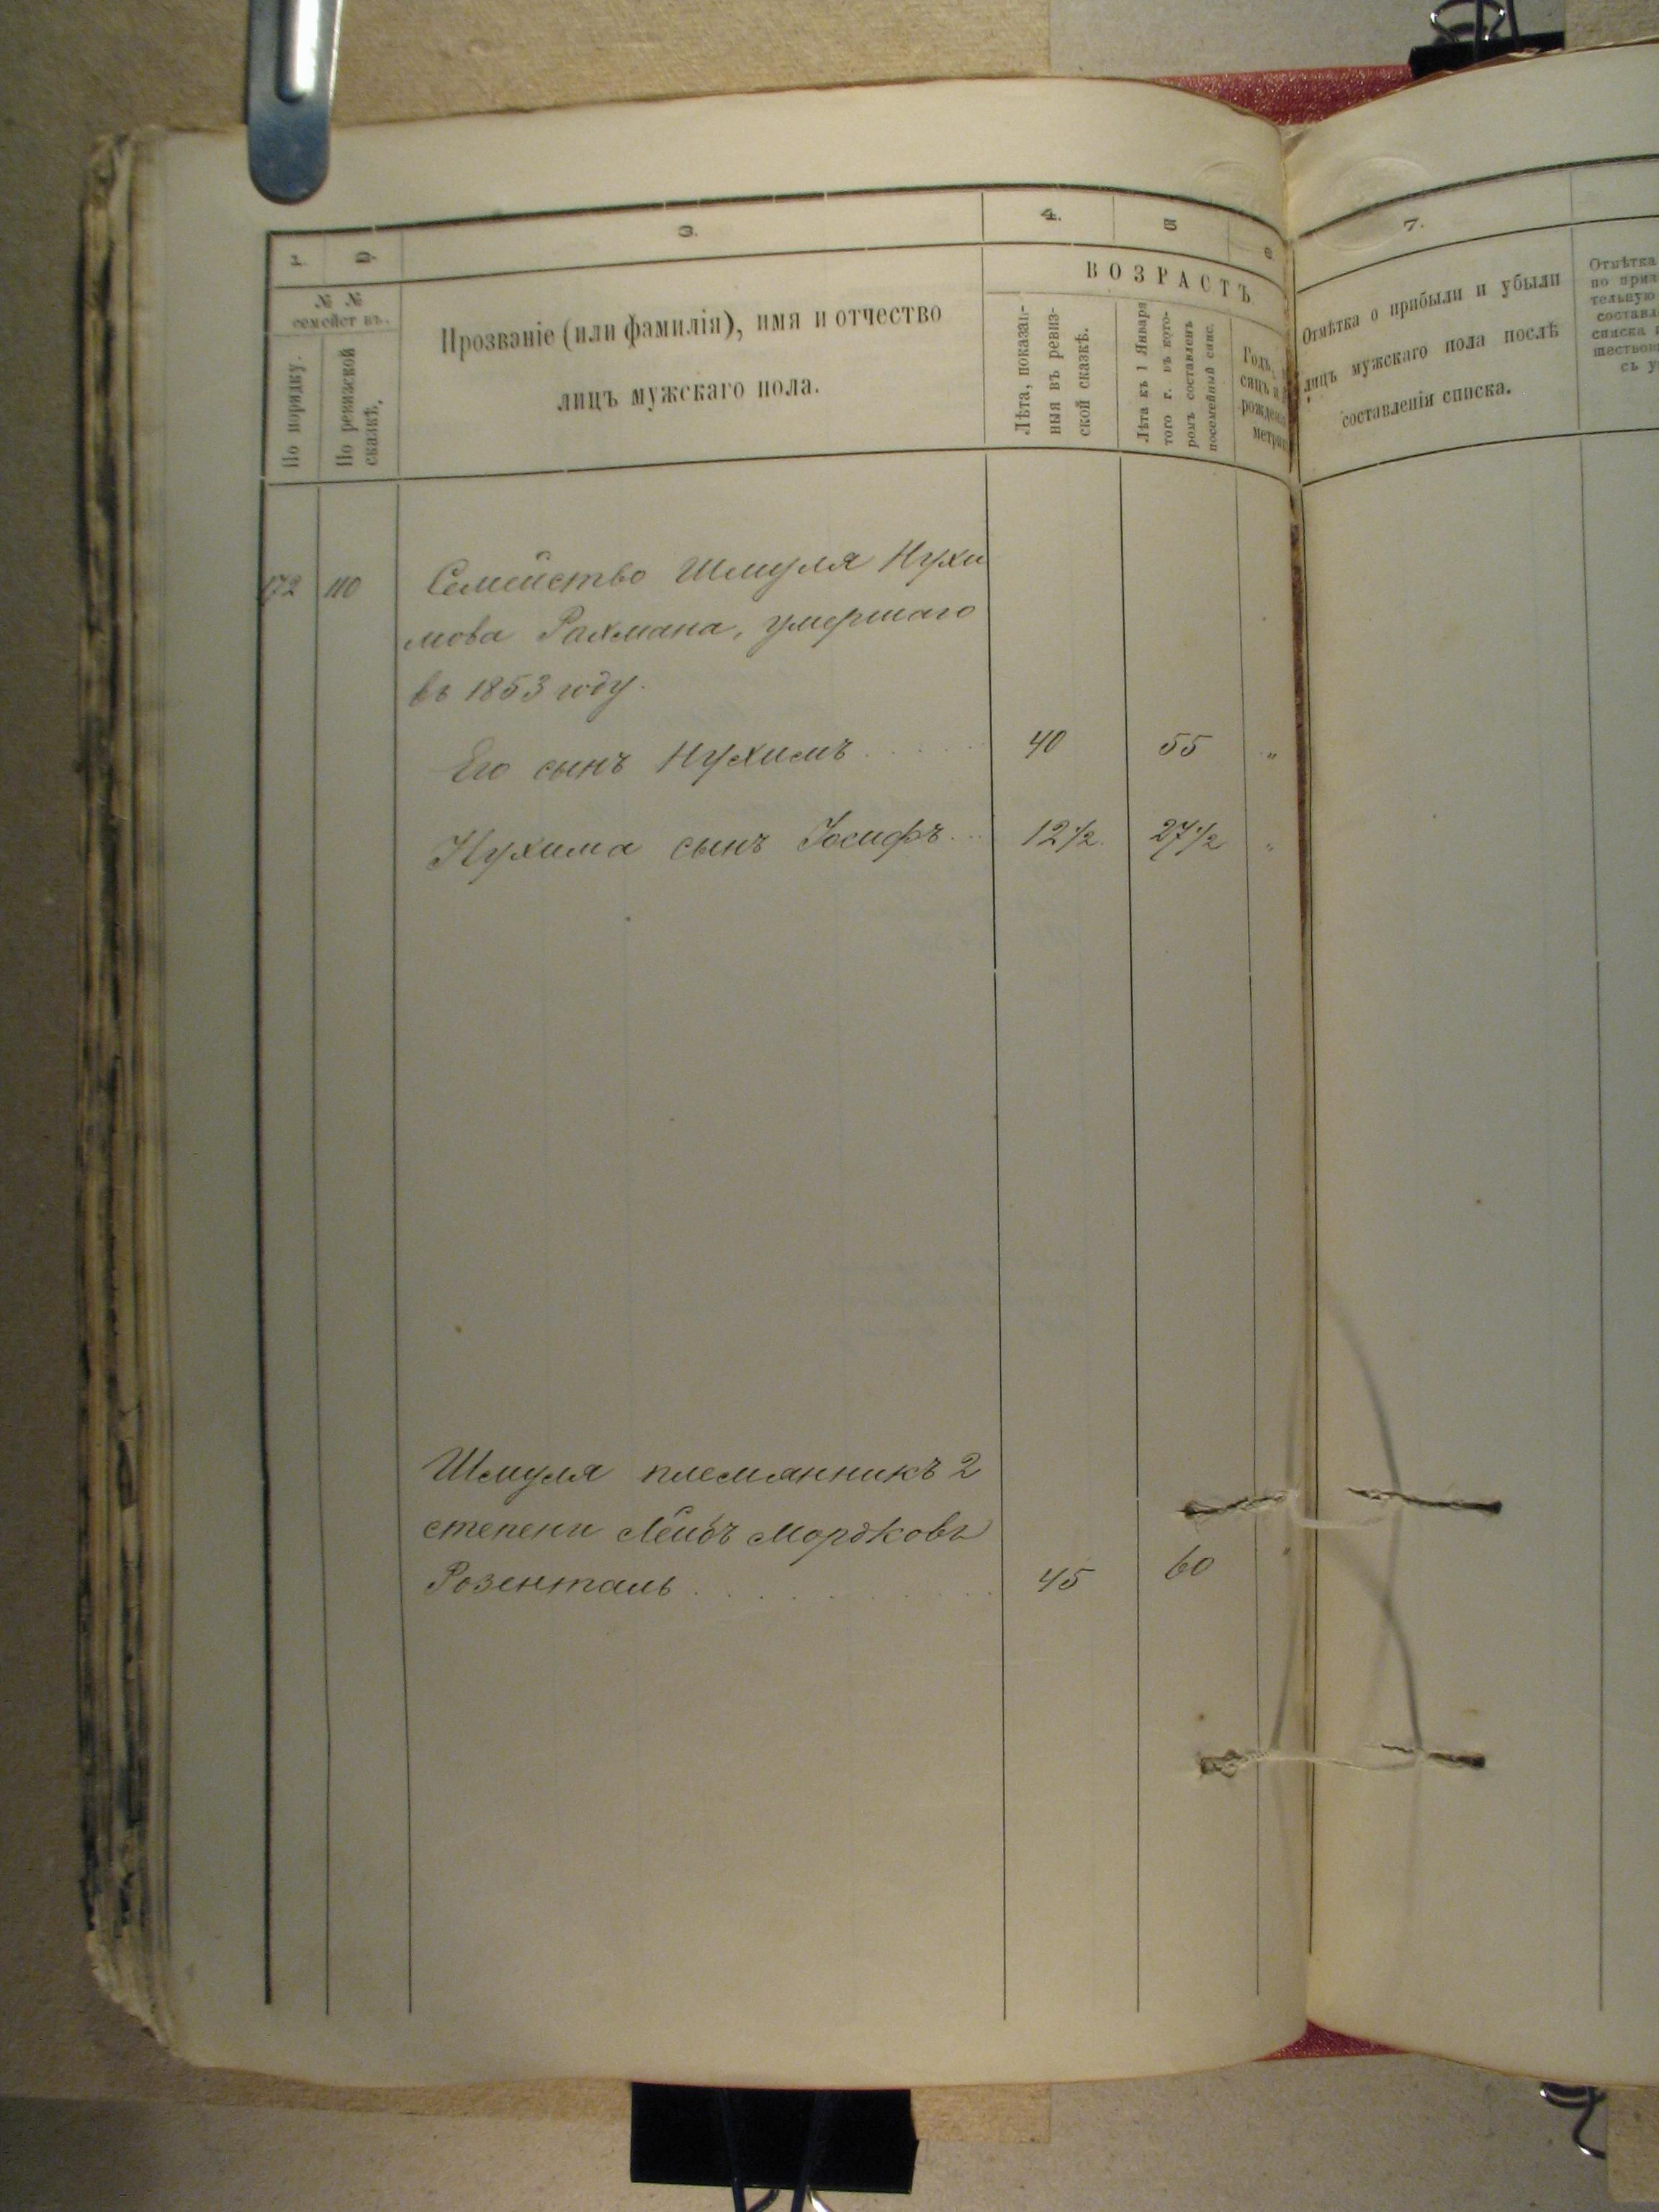 1.
2.
3.
4.
5
6
№ №
семействъ.
По порядку.
По ревижской
сказкѣ.
Прозваніе (или фамилія), имя и отчество
лицъ мужскаго пола.
ВОЗРАСТЪ
Лѣта, показан-
ныя въ ревиз-
ской сказкѣ.
Лѣта къ 1 Января
того г. въ кото-
ромъ составленъ
посемейный спис.
Годъ,
рожден
метрик
172 110 Семейство Шмуля Нухи
мова Рахмана, умершаго
въ 1853 году.
Его сынъ Нухимъ 40 55 "
Нухима сынъ Іосифъ 12½ 27½ "
Шмуля племянникъ 2
степени Лейбъ Мордковъ
Розенталь 45 60
7.
Отмѣтка о прибыли и убыли
лицъ мужскаго пола послѣ
составленія списка.
Отмѣтка
по приз
тельную
составл
списка и
шествою
съ у